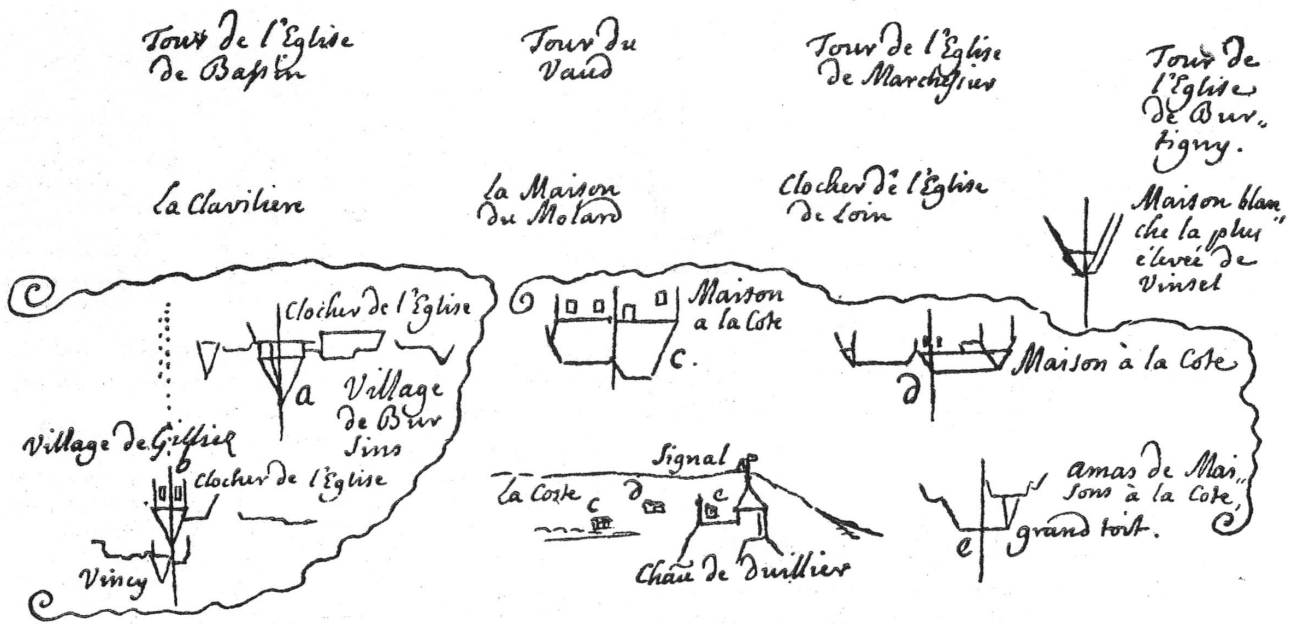 Tour de l'Eglise
de Bassin
Tour du
Vaud
Tour de l'Eglise
de Marchissier
Tour de
l'Eglise
de Bur„
tigny.
la Claviliere
la Maison
du Molard
Clocher de l'Eglise
de Loin
Maison blan„
che la plus
élevée de
Vinsel
Clocher de l'Eglise
a
Village
de Bur
sins
Maison
a la Cote
C.
d
Maison à la Cote
Village de Gillier
b
Clocher de l'Eglise
Vincy
Signal
La Coste
c
d
e
Chau de Duillier
e
amas de Mai„
sons à la Cote,
grand toit.